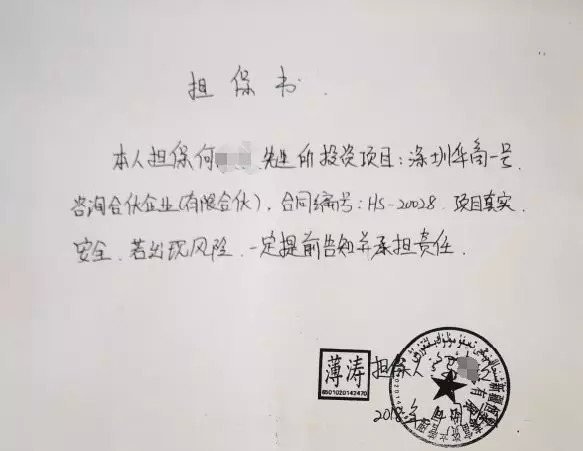 担保书
本人担保何 先生所投资项目：深圳华商一号
咨询合伙企业(有限合伙)，合同编号：HS-20028 项目真实
安全．若出现风险．一定提前告知并承担责任．
薄涛
6501020142470
担保人
2018年